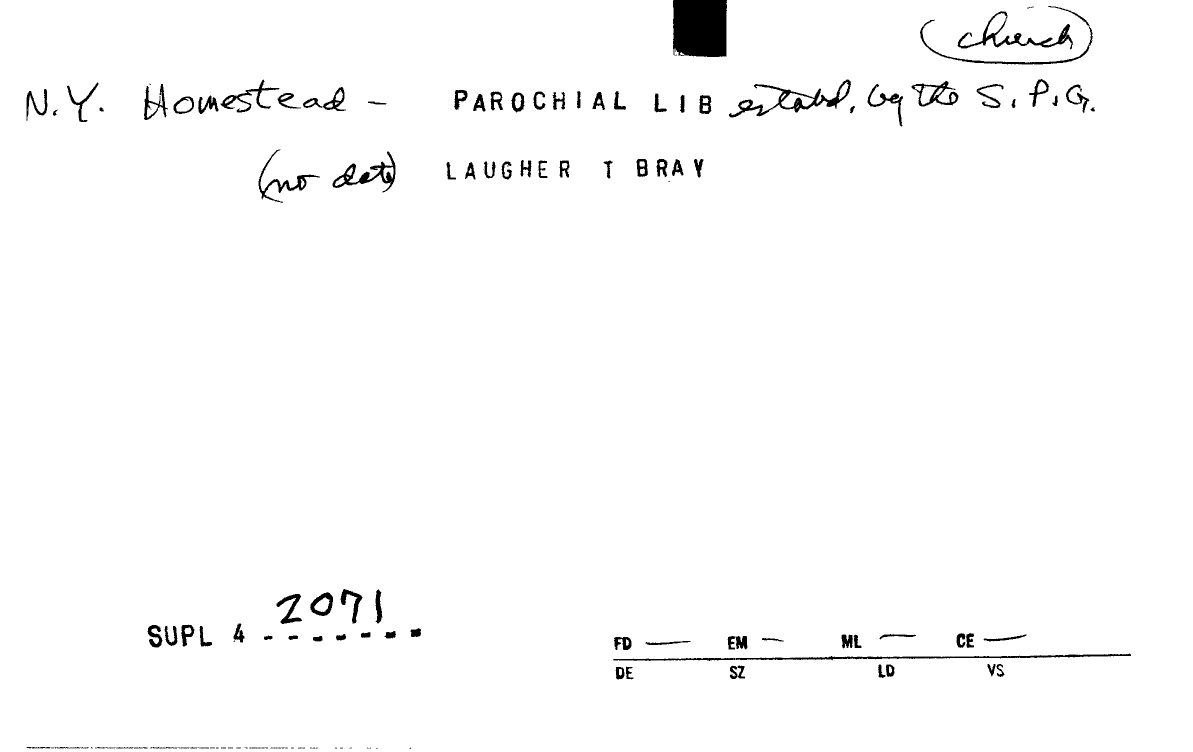 church
N.Y. Homestead - PAROCHIAL LIB establd, by the S.P.G.
(no date) LAUGHER T BRAY
SUPL 4 2071
FD — EM — ML — CE —
DE SZ LD VS